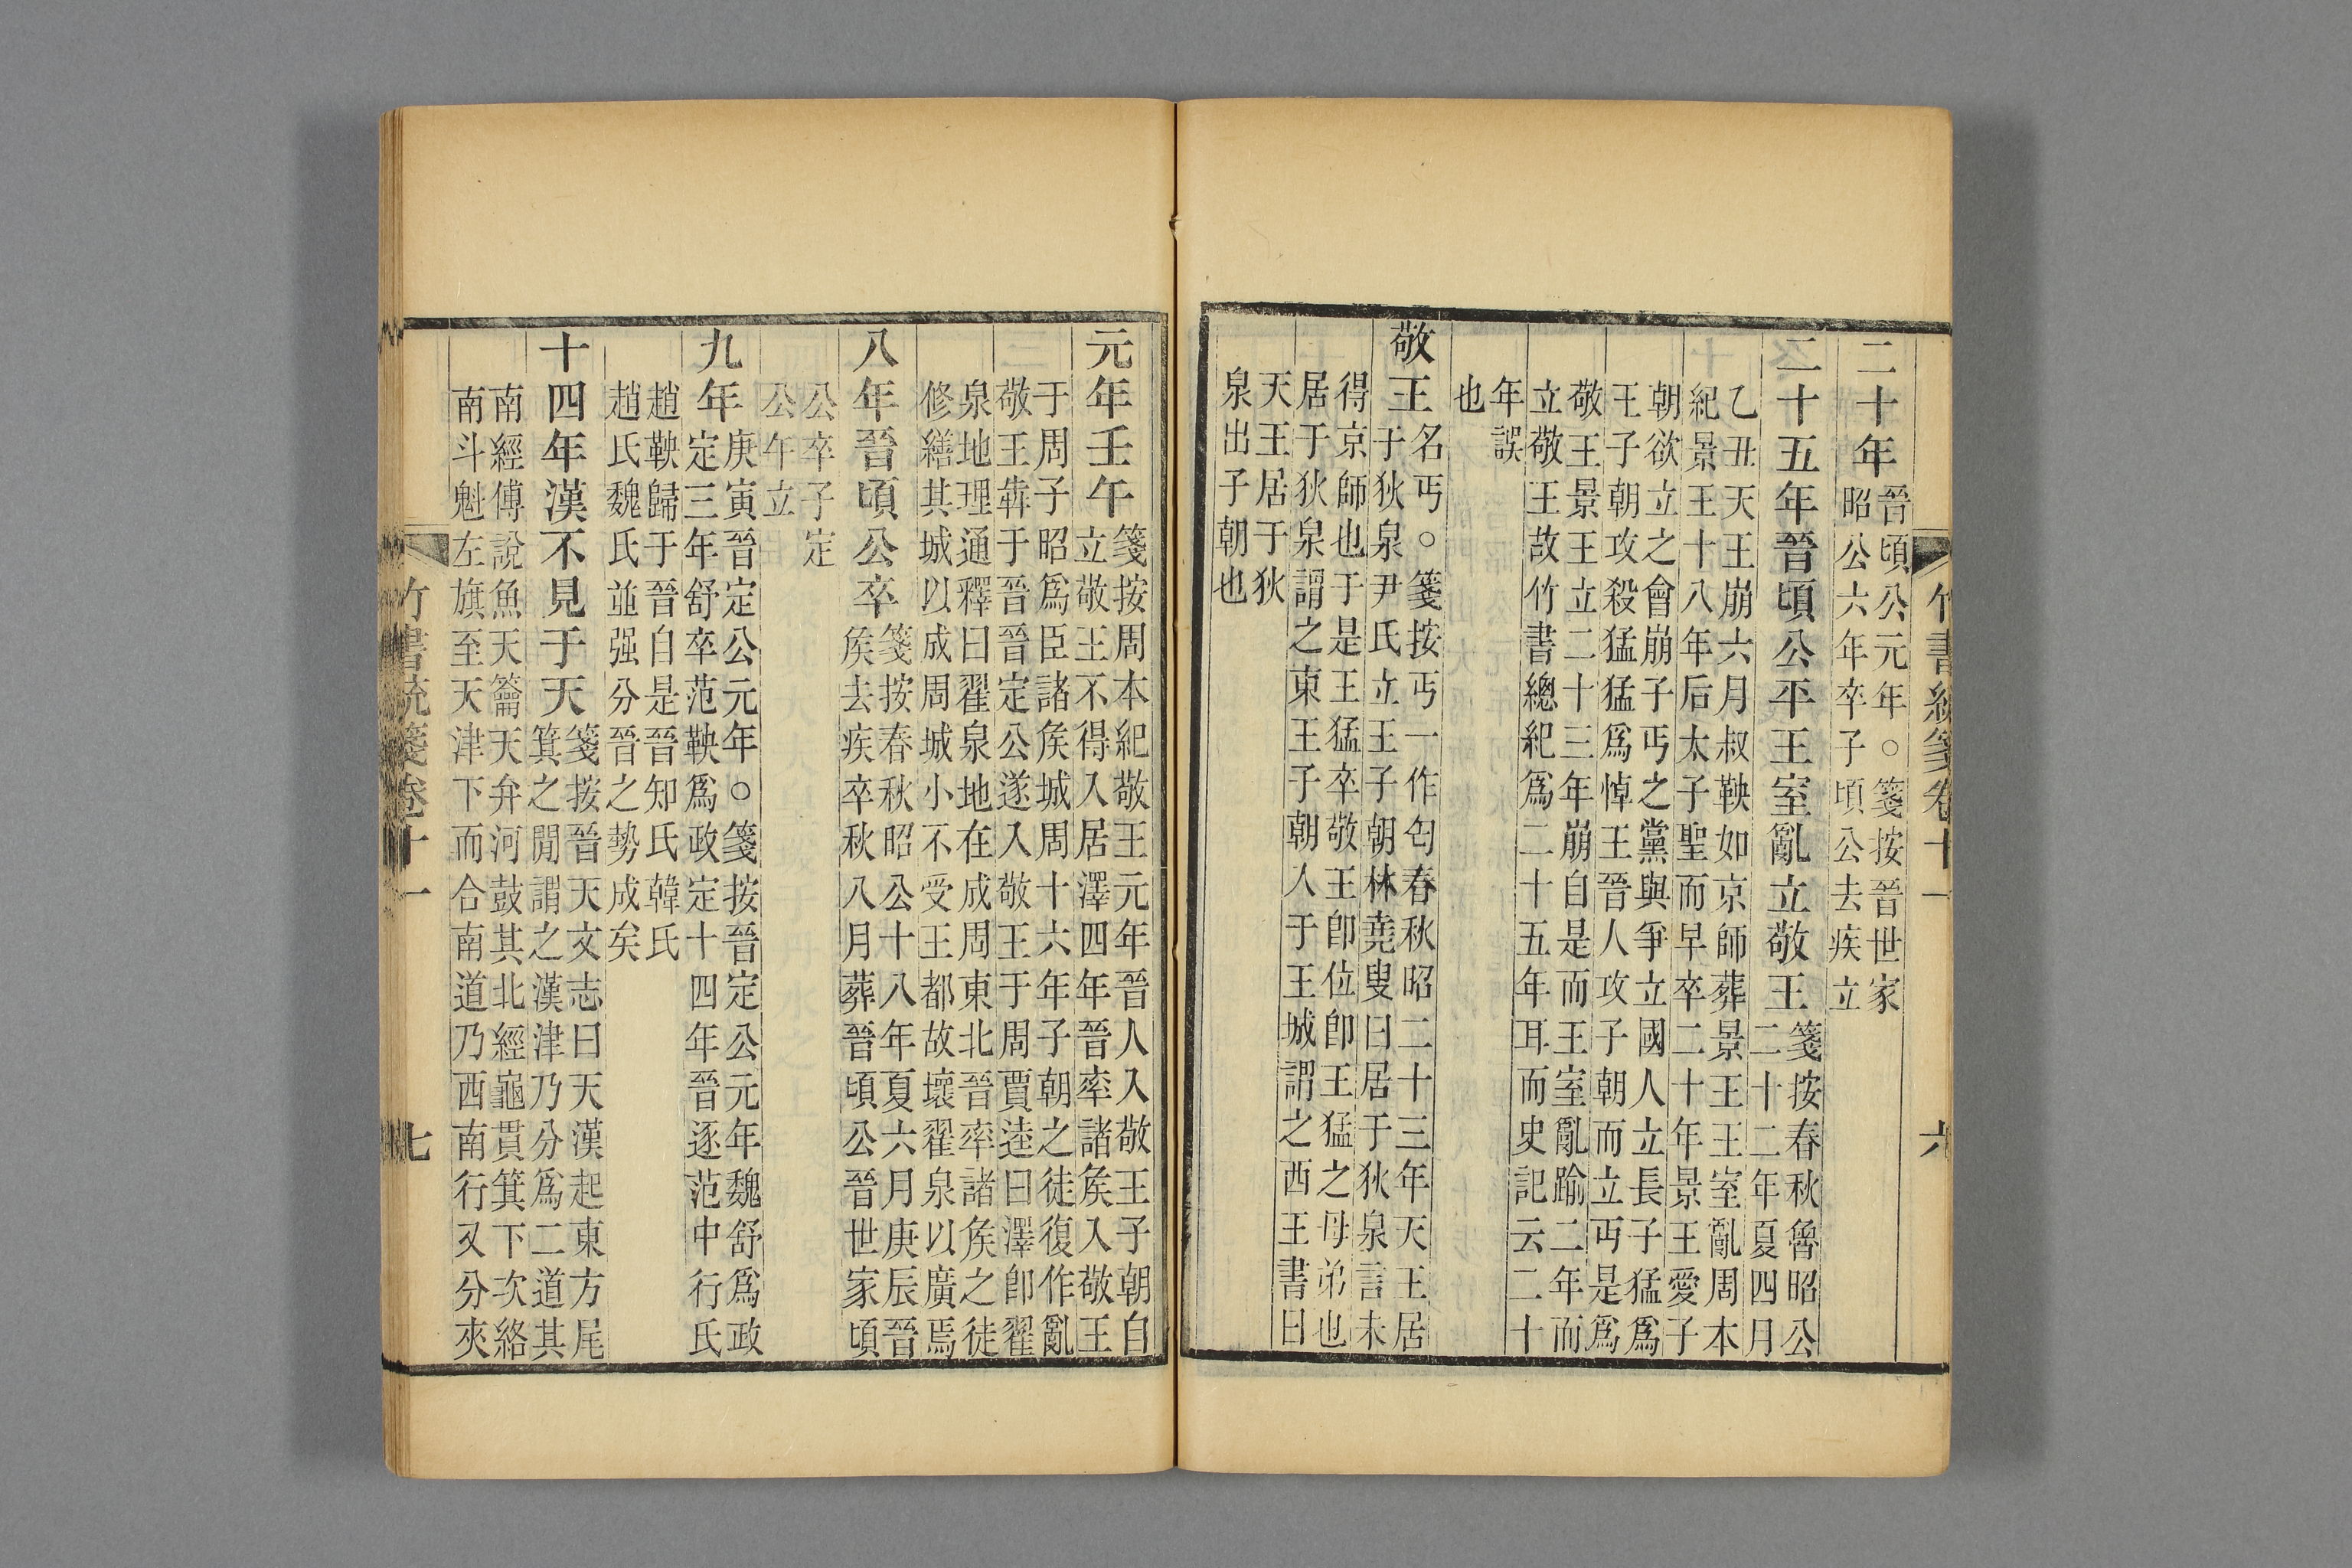 竹書統箋卷十一
六
二十年晉頃公元年。箋按晉世家
昭公六年卒子頃公去疾立
二十五年晉頃公平王室亂立敬王箋按春秋魯昭公
二十二年夏四月
乙丑天王崩六月叔鞅如京師葬景王王室亂周本
紀景王十八年后太子聖而早卒二十年景王愛子
朝欲立之會崩子丐之黨與爭立國人立長子猛爲
王子朝攻殺猛猛爲悼王晉人攻子朝而立丐是爲
敬王景王立二十三年崩自是而王室亂踰二年而
立敬王故竹書總紀爲二十五年耳而史記云二十
年誤
也
敬王名丐。箋按丐一作匄春秋昭二十三年天王居
于狄泉尹氏立王子朝林堯叟曰居于狄泉言未
得京師也于是王猛卒敬王卽位卽王猛之母弟也
居于狄泉謂之東王子朝入于王城謂之西王書曰
天王居于狄
泉出子朝也
元年壬午箋按周本紀敬王元年晉人入敬王子朝自
立敬王不得入居澤四年晉率諸矦入敬王
于周子昭爲臣諸矦城周十六年子朝之徒復作亂
敬王犇于晉晉定公遂入敬王于周賈逵曰澤卽翟
泉地理通釋曰翟泉地在成周東北晉率諸矦之徒
修繕其城以成周城小不受王都故壞翟泉以廣焉
八年晉頃公卒箋按春秋昭公十八年夏六月庚辰晉
矦去疾卒秋八月葬晉頃公晉世家頃
公卒子定
公午立
九年庚寅晉定公元年。箋按晉定公元年魏舒爲政
定三年舒卒范鞅爲政定十四年晉逐范中行氏
趙鞅歸于晉自是晉知氏韓氏
趙氏魏氏並强分晉之勢成矣
十四年漢不見于天箋按晉天文志曰天漢起東方尾
箕之閒謂之漢津乃分爲二道其
南經傅說魚天籥天弁河鼓其北經龜貫箕下次絡
南斗魁左旗至天津下而合南道乃西南行又分夾
竹書統箋卷十一
七